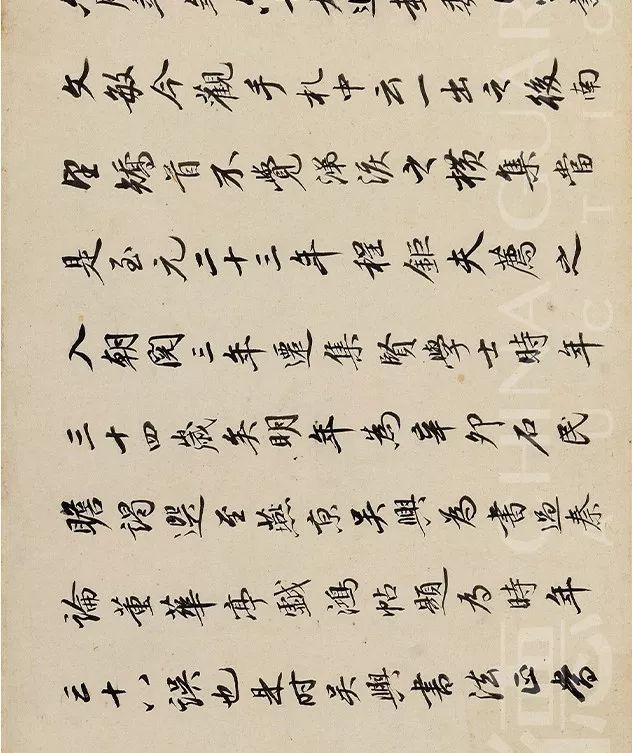 文敏今觀手札中云一出之後南
望矯首不覺涕淚之橫集當
是至元二十三年程鉅夫薦之
入朝閱三年遷集賢學士時年
三十四歲矣明年為辛卯石民
瞻謁選至燕京吳興為書過秦
論董華亭戲鴻帖題為時年
三十八誤也是時吳興書法正
CHINA GUAR